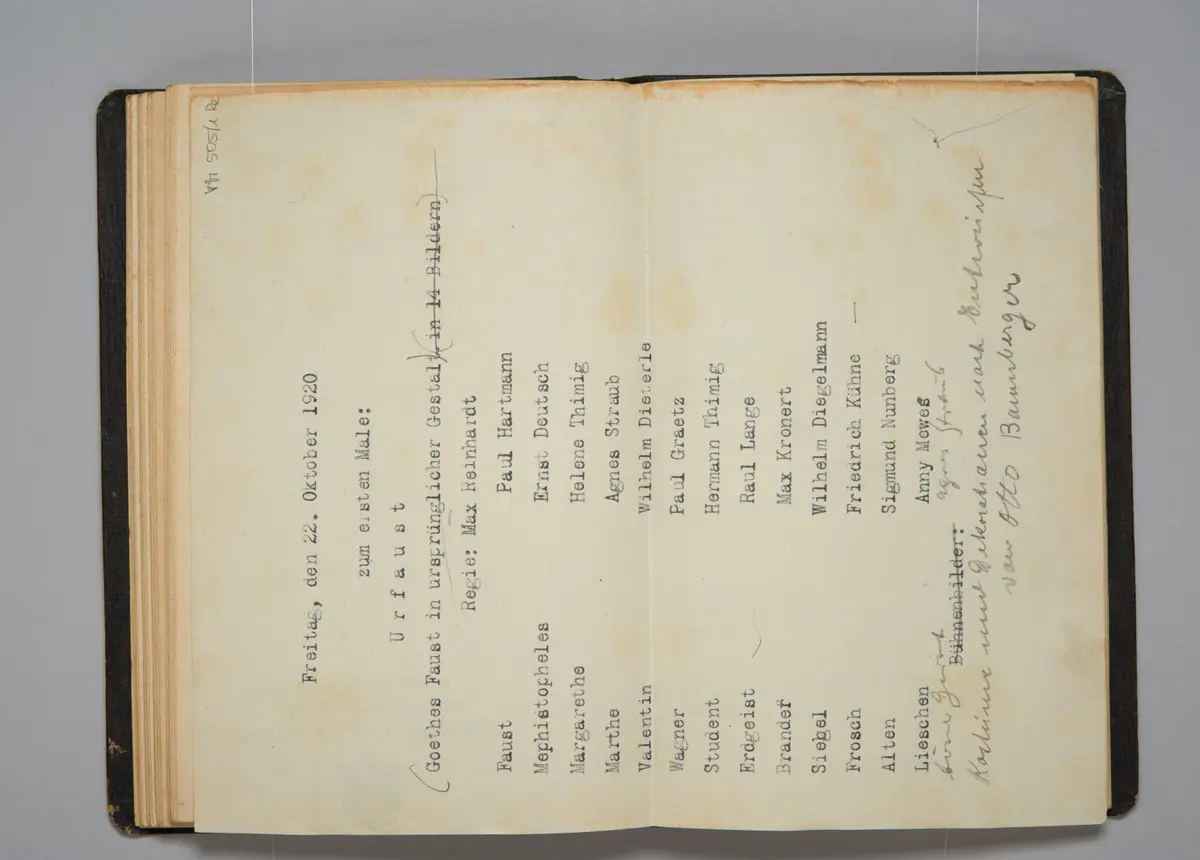 VM 505/1 Re
Freitag, den 22. Oktober 1920
zum ersten Male:
U r f a u s t
(Goethes Faust in ursprünglicher Gestalt) in 14 Bildern)
Regie: Max Reinhardt
Faust Paul Hartmann
Mephistopheles Ernst Deutsch
Margarethe Helene Thimig
Marthe Agnes Straub
Valentin Wilhelm Dieterle
Wagner Paul Graetz
Student Hermann Thimig
Erdgeist Raul Lange
Brander Max Kronert
Siebel Wilhelm Diegelmann
Frosch Friedrich Kühne
Alten Sigmund Nunberg
Lieschen Anny Mewes
böser Geist Agnes Straub
Bühnenbilder:
Kostüme und Dekorationen nach Entwürfen
von Otto Baumberger